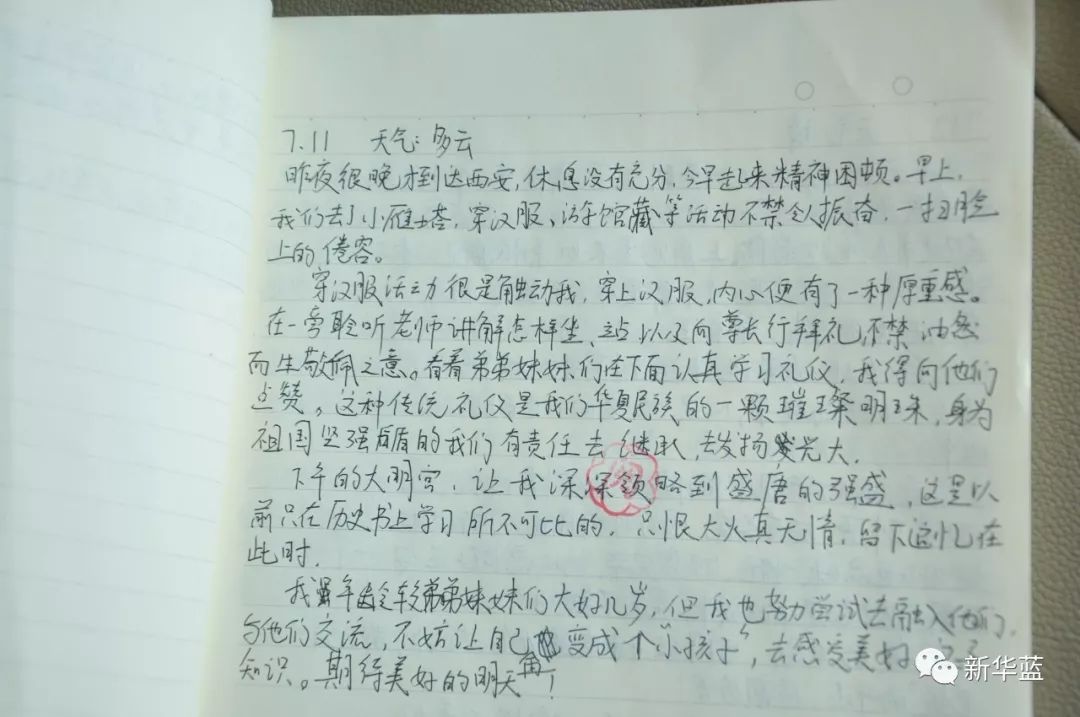 7.11 天气:多云
昨夜很晚才到达西安,休息没有充分,今早起来精神困顿。早上,
我们去了小雁塔,穿汉服、游馆藏等活动不禁令人振奋,一扫脸
上的倦容。
穿汉服活动很是触动我,穿上汉服,内心便有了一种厚重感。
在一旁聆听老师讲解怎样坐、站以及向尊长行拜礼,不禁油然
而生敬佩之意。看着弟弟妹妹们在下面认真学习礼仪,我得向他们
点赞。这种传统礼仪是我们华夏民族的一颗璀璨明珠,身为
祖国坚强后盾的我们有责任去继承,去发扬光大。
下午的大明宫,让我深深领略到盛唐的强盛,这是以
前只在历史书上学习所不可比的,只恨大火真无情,留下追忆在
此时.
我年龄较弟弟妹妹们大好几岁,但我也努力尝试去融入他们,
与他们交流,不妨让自己变成个"小孩子",去感受美好
知识。期待美好的明天!
新华蓝